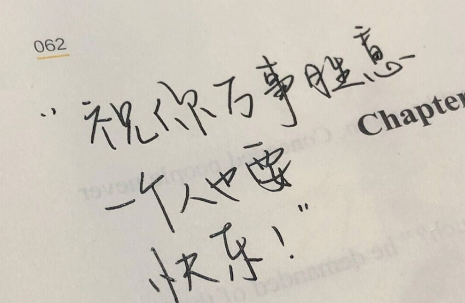 062
“祝你万事胜意
Chapter
一个人也要
快乐!”